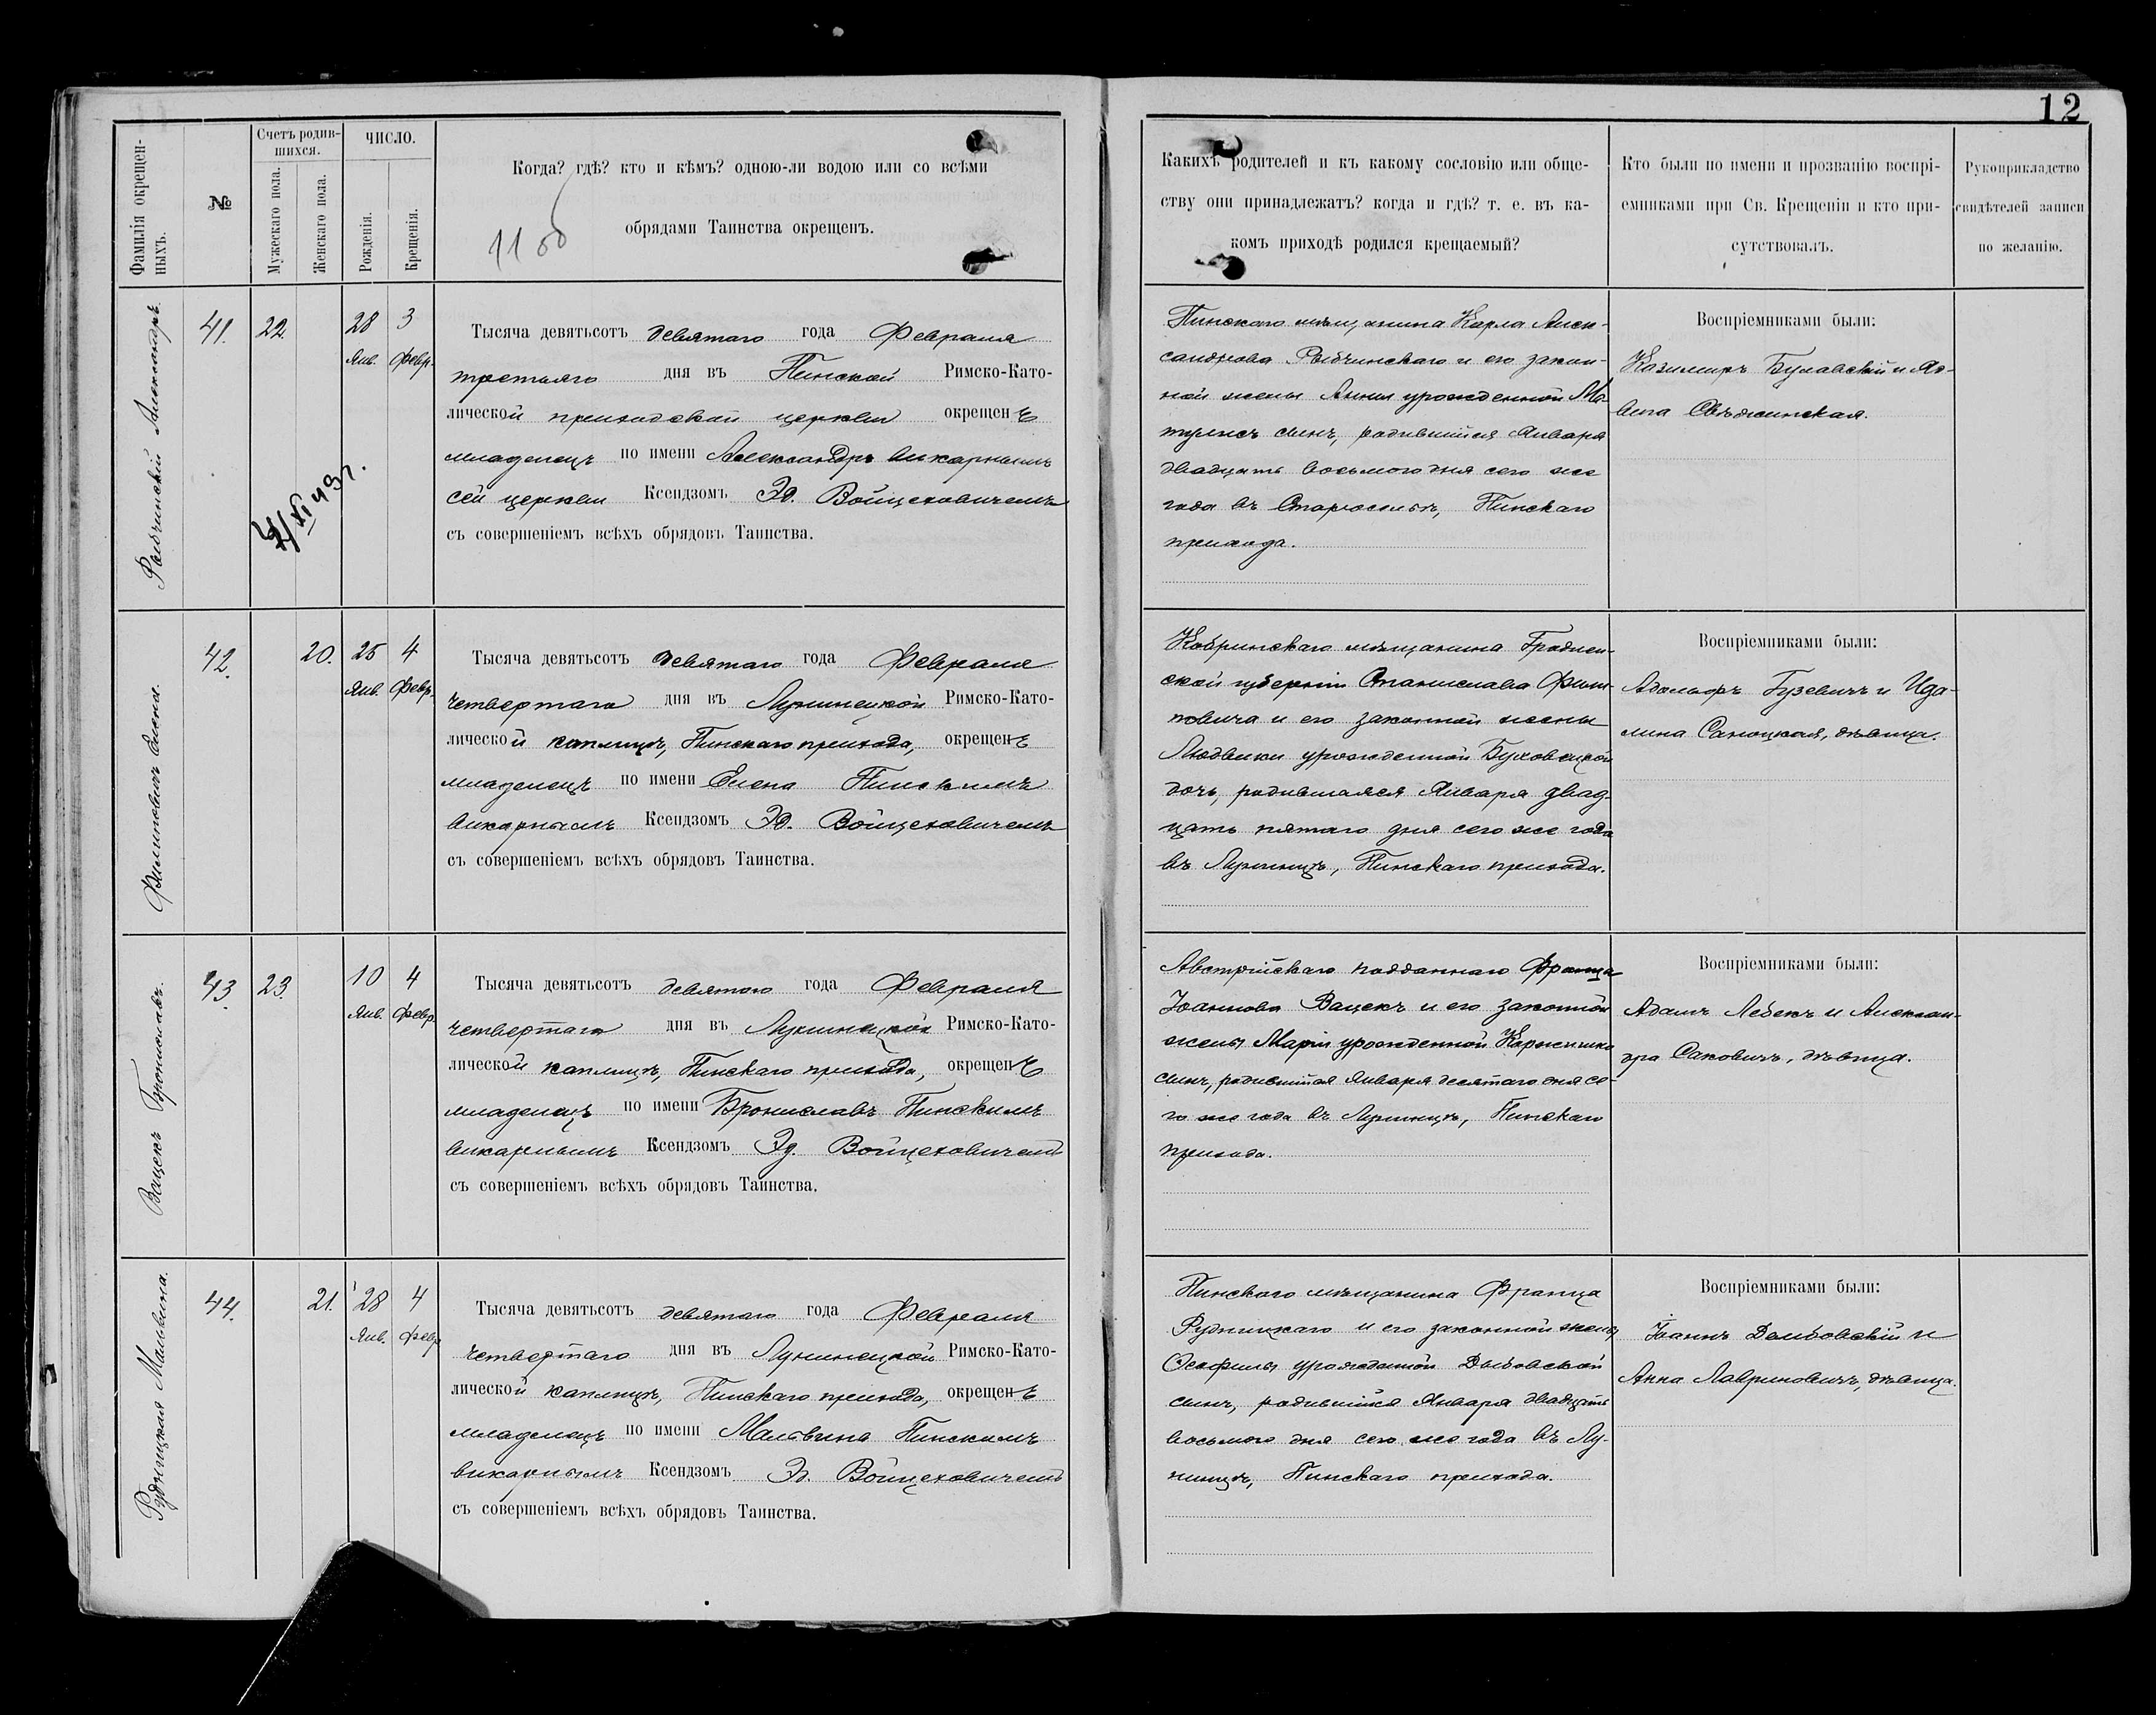 12
Фамилія окрещен-
ныхъ.
№
Счетъ родив-
шихся.
Мужескаго пола.
Женскаго пола.
ЧИСЛО.
Рожденія.
Крещенія.
Когда? гдѣ? кто и кѣмъ? одною-ли водою или со всѣми
обрядами Таинства окрещенъ.
Какихъ родителей и къ какому сословію или обще-
ству они принадлежатъ? когда и гдѣ? т. е. въ ка-
комъ приходѣ родился крещаемый?
Кто были по имени и прозванію воспрі-
емниками при Св. Крещеніи и кто при-
сутствовалъ.
Рукоприкладство
свидѣтелей записи
по желанію.
Рыбчинскій Александръ.
41.
22.
28
Янв.
3
Февр.
Тысяча девятьсотъ девятаго года Февраля
третьяго дня въ Пинской Римско-Като-
лической приходской церкви окрещенъ
младенецъ по имени Александръ викарнымъ
сей церкви Ксендзомъ Эд. Войцеховичемъ
съ совершеніемъ всѣхъ обрядовъ Таинства.
Пинскаго мѣщанина Карла Алек-
сандрова Рыбчинскаго и его закон-
ной жены Анны урожденной Ма-
тулисъ сынъ, родившійся Января
двадцать восьмого дня сего же
года въ Староселье, Пинскаго
прихода.
Воспріемниками были:
Казимиръ Булавскій и Яд-
вига Свѣжинская.
Филиповичъ Елена.
42.
20.
25
Янв.
4
Февр.
Тысяча девятьсотъ девятаго года Февраля
четвертаго дня въ Лунинецкой Римско-Като-
лической каплицѣ, Пинскаго прихода, окрещенъ
младенецъ по имени Елена Пинскимъ
викарнымъ Ксендзомъ Эд. Войцеховичемъ
съ совершеніемъ всѣхъ обрядовъ Таинства.
Кобринскаго мѣщанина Гроднен-
ской губерніи Станислава Фили-
повича и его законной жены
Людвики урожденной Буховецкой
дочь, родившаяся Января двад-
цать пятаго дня сего же года
въ Лунинцѣ, Пинскаго прихода.
Воспріемниками были:
Адольфъ Гузевичъ и Ида-
лина Саноцкая, дѣвица.
Вацекъ Брониславъ.
43.
23.
10
Янв.
4
Февр.
Тысяча девятьсотъ девятаго года Февраля
четвертаго дня въ Лунинецкой Римско-Като-
лической каплицѣ, Пинскаго прихода, окрещенъ
младенецъ по имени Брониславъ Пинскимъ
викарнымъ Ксендзомъ Эд. Войцеховичемъ
съ совершеніемъ всѣхъ обрядовъ Таинства.
Австрійскаго подданнаго Франца
Іоаннова Вацекъ и его законной
жены Маріи урожденной
сынъ, родившійся Января десятаго дня се-
го же года въ Лунинцѣ, Пинскаго
прихода.
Воспріемниками были:
Адамъ Лебекъ и Александ-
ра Саковичъ, дѣвица.
Рудницкая Мальвина.
44.
21.
28
Янв.
4
Февр.
Тысяча девятьсотъ девятаго года Февраля
четвертаго дня въ Лунинецкой Римско-Като-
лической каплицѣ, Пинскаго прихода, окрещенъ
младенецъ по имени Мальвина Пинскимъ
викарнымъ Ксендзомъ Эд. Войцеховичемъ
съ совершеніемъ всѣхъ обрядовъ Таинства.
Пинскаго мѣщанина Франца
Рудницкаго и его законной жены
Теофилы урожденной Дыбовской
сынъ, родившійся Января двадцать
восьмого дня сего же года въ Лу-
нинцѣ, Пинскаго прихода.
Воспріемниками были:
Іоаннъ Домбовскій и
Анна Лавриновичъ, дѣвица.